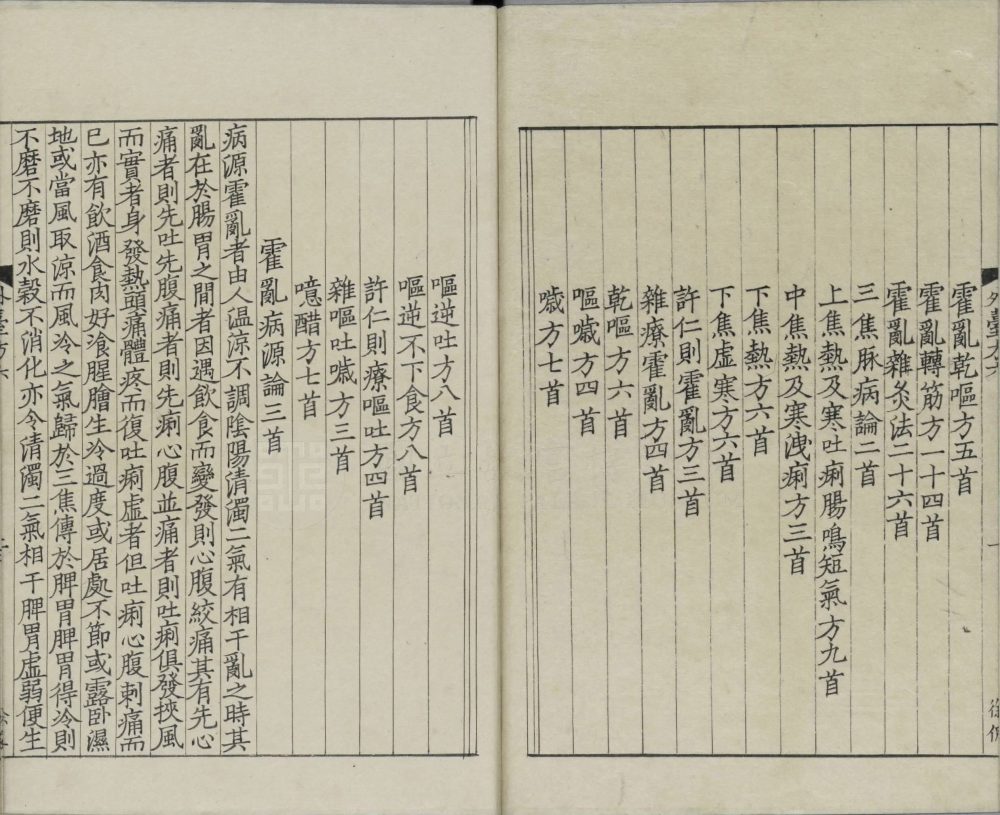 霍亂乾嘔方五首
霍亂轉筋方一十四首
霍亂雜灸法二十六首
三焦脉病論二首
上焦熱及寒吐痢腸鳴短氣方九首
中焦熱及寒洩痢方三首
下焦熱方六首
下焦虛寒方六首
許仁則霍亂方三首
雜療霍亂方四首
乾嘔方六首
嘔噦方四首
噦方七首
嘔逆吐方八首
嘔逆不下食方八首
許仁則療嘔吐方四首
雜嘔吐噦方三首
噫醋方七首
霍亂病源論三首
病源霍亂者由人温涼不調陰陽清濁二氣有相干亂之時其
亂在於腸胃之間者因遇飲食而變發則心腹絞痛其有先心
痛者則先吐先腹痛者則先痢心腹並痛者則吐痢俱發挾風
而實者身發熱頭痛體疼而復吐痢虛者但吐痢心腹刺痛而
巳亦有飲酒食肉好飡腥膾生冷過度或居處不節或露卧濕
地或當風取涼而風冷之氣歸於三焦傳於脾胃脾胃得冷則
不磨不磨則水穀不消化亦令清濁二氣相干脾胃虛弱便生